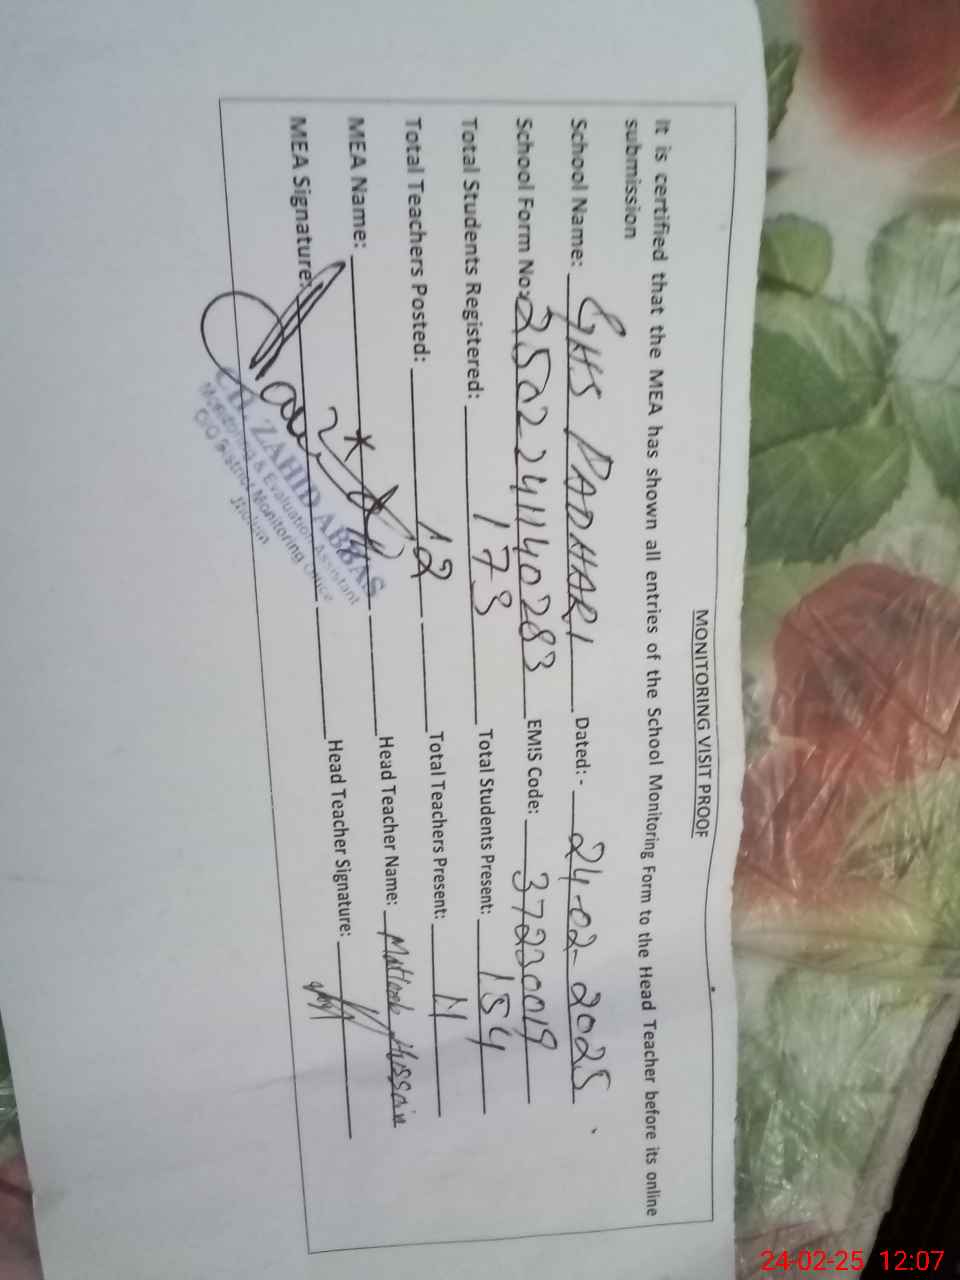 MONITORING VISIT PROOF
It is certified that the MEA has shown all entries of the School Monitoring Form to the Head Teacher before its online
submission
School Name: GHS PADHARI Dated:- 24-02-2025
School Form No: 2502241140283 EMIS Code: 37220019
Total Students Registered: 173 Total Students Present: 154
Total Teachers Posted: 12 Total Teachers Present: 11
MEA Name: Head Teacher Name: Hussain
MEA Signature: Head Teacher Signature:
CH. ZAHID ABBAS
Monitoring & Evaluation Assistant
O/O District Monitoring Office
Jhelum
24-02-25 12:07